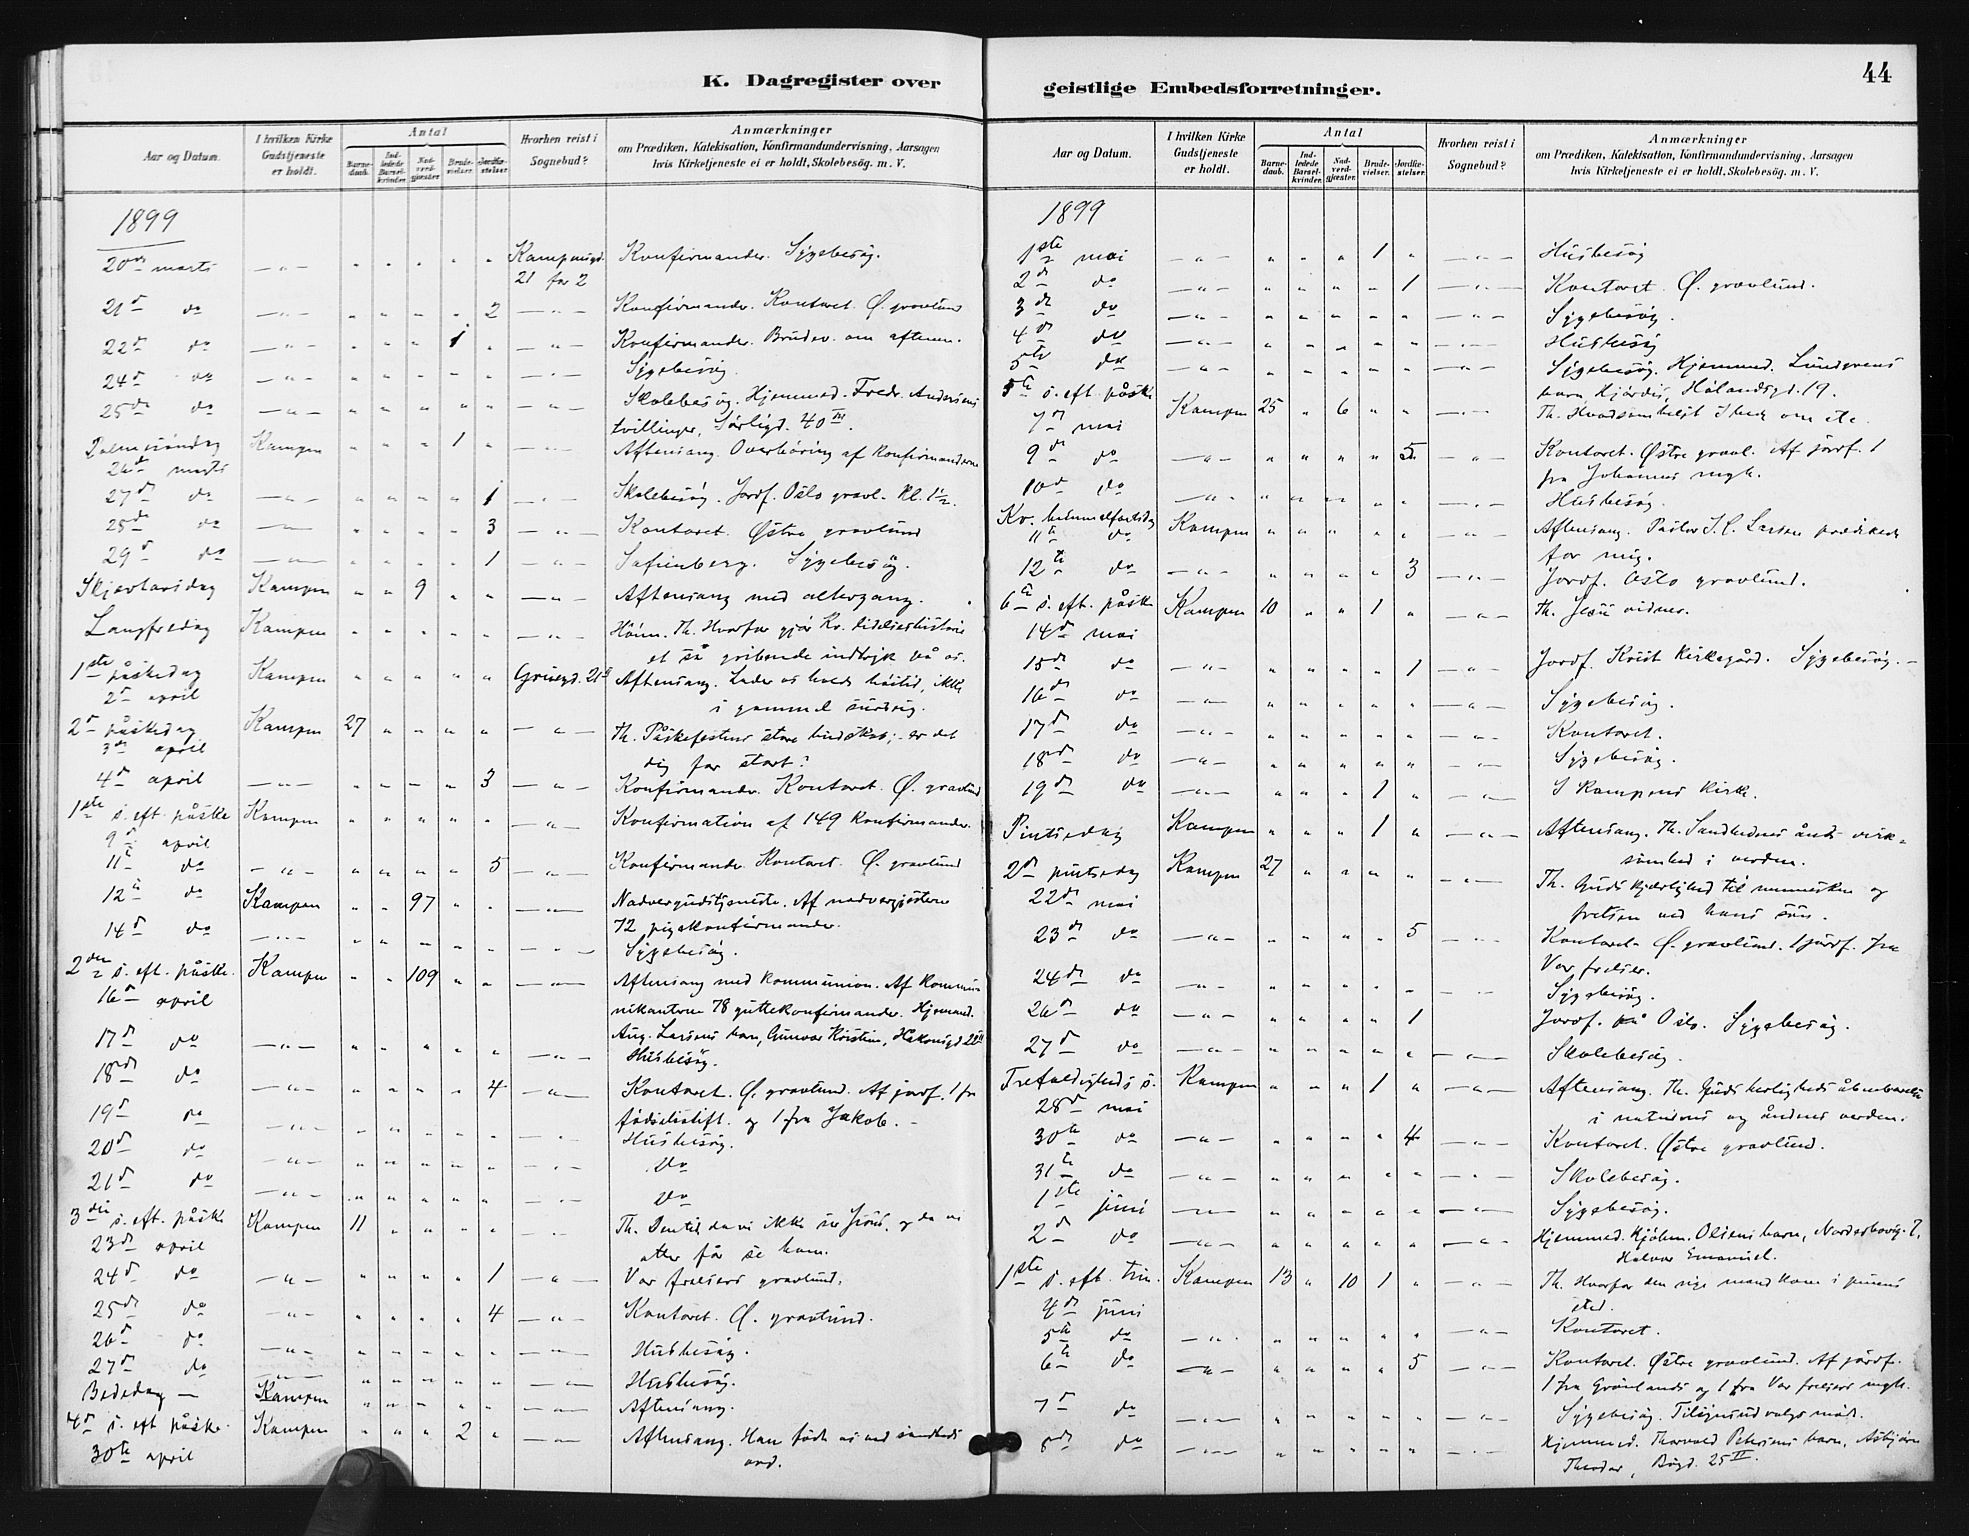 44
K. Dagregister over geistlige Embedsforretninger.
Aar og Datum.
I hvilken Kirke Gudstjeneste er holdt.
Antal
Barnedaab.
Indledede Barselkvinder.
Nadverdgjæster.
Brudevielser.
Jordfæstelser.
Hvorhen reist i Sognebud?
Anmærkninger
om Prædiken, Katekisation, Konfirmandundervisning, Aarsagen
hvis Kirketjeneste ei er holdt, Skolebesög. m. V.
1899
20 marts — " — " " " " " Konfirmander. Sygebesög.
21 for 2
21 do — " — " " " " 2 — " — Konfirmander. Kontoret. Ø. gravlund
22 do — " — " " " 1 " — " — Konfirmander. Brudev. om aftenen.
24 do — " — " " " " " — " — Sygebesög.
25 do — " — " " " " " — " — Skolebesög. Hjemmed. Fredr. Andersens
tvillinger, Sörligd. 40 III.
Palmesöndag Kampen " " " 1 " — " — Aftensang. Overhöring af Konfirmanderne
26 marts
27 do — " — " " " " 1 — " — Skolebesög. Jordf. Oslo gravl. Kl. 1½.
28 do — " — " " " " 3 — " — Kontoret. Østre gravlund
29 do — " — " " " " 1 — " — Sofienberg. Sygebesög.
Skjærtorsdag Kampen " " 9 " " — " — Aftensang med altergang.
Langfredag Kampen " " " " " — " — Höim. Th. Hvorfor gjör Kr. lidelseshistorie
et så gribende indtryk på os.
1ste påskedag Kampen " " " " " Aftensang. Lader os holde höitid, ikke
2 april i gammel surdeig.
2 påskedag Kampen 27 " " " " — " — Th. Påskefestens store budskab; er det
3 april dig for stort?
4 april — " — " " — " 3 — " — Konfirmander. Kontoret. Ø. gravlund
1ste s. eft. påske Kampen " " " " " — " — Konfirmation af 149 Konfirmander.
9 april
11 do — " — " " " " 5 — " — Konfirmander. Kontoret. Ø. gravlund
12 do Kampen " " 97 " " — " — Nadvergudstjeneste. Af nadvergjesterne
72 pigekonfirmander.
14 do — " — " " " " " — " — Sygebesög.
2den s. eft. påske. Kampen " " 109 " " — " — Aftensang med kommunion. Af kommu-
16 april nikanterne 78 guttekonfirmander. Hjemmed.
Aug. Larsens barn, Gunvor Kristine,
17 do — " — " " " " " — " — Husbesög.
18 do — " — " " " " 4 — " — Kontoret. Ø. gravlund. Af jordf. 1 fra
födselsstift. og 1 fra Jakob.
19 do — " — " " " " " — " — Husbesög.
20 do — " — " " " " " — " — do
21 do — " — " " " " " — " — do
3die s. eft. påske Kampen 11 " " " " — " — Th. Den tid da vi ikke ser Jesus, og da vi
23 april atter får se ham.
24 do — " — " " " " 1 — " — Vor frelsers gravlund.
25 do — " — " " " " 4 — " — Kontoret. Ø. gravlund.
26 do — " — " " " " " — " — Husbesög.
27 do — " — " " " " " — " — Husbesög.
Bededag — Kampen " " " " " — " — Aftensang.
4 s. eft påske. Kampen " " " 2 " — " — Aftensang. Han födte os ved sandheds
30te april ord.
Aar og Datum.
I hvilken Kirke Gudstjeneste er holdt.
Antal
Barnedaab.
Indledede Barselkvinder.
Nadverdgjæster.
Brudevielser.
Jordfæstelser.
Hvorhen reist i Sognebud?
Anmærkninger
om Prædiken, Katekisation, Konfirmandundervisning, Aarsagen
hvis Kirketjeneste ei er holdt, Skolebesög. m. V.
1899
1ste mai — " — " " " 1 " — " — Husbesög
2 do — " — " " " " 1 — " — Kontoret. Ø. gravlund.
3 do — " — " " " " " — " — Sygebesög.
4 do — " — " " " " " — " — Husbesög
5te do — " — " " " " " — " — Sygebesög. Hjemmed. Lundgrens
barn, Hjördis, Hölandsgd. 19.
5te s. eft. påske Kampen 25 " 6 " " — " — Th. Hvadsomhelst I bede om etc.
7 mai
9 do — " — " " " " 5 — " — Kontoret. Østre gravl. Af jordf. 1
fra Johannes mgh.
10 do — " — " " " " " — " — Husbesög.
Kr. himmelfartsdag Kampen " " " " " — " — Aftensang. Pastor Larsen prædikede
11 do for mig.
12te do — " — " " " " 3 — " — Jordf. Oslo gravlund.
6te s. eft. påske Kampen 10 " " 1 " — " — Th. Jesu vidner.
14 mai
15 do — " — " " " " 1 — " — Jordf. Krist Kirkegård. Sygebesög.
16 do — " — " " " " " — " — Sygebesög.
17 do — " — " " " " " — " — Kontoret.
18 do — " — " " " " " — " — Sygebesög.
19 do — " — " " " 1 " — " — I Kampens Kirke.
Pintsedag Kampen " " " 1 " — " — Aftensang. Th. Sandhedens ånds virk-
somhed i verden.
2 pintsedag Kampen 27 " " " " — " — Th. Guds kjærlighed til menneskene og
22 mai frelsen ved hans sön.
23 do — " — " " " " 5 — " — Kontoret. Ø. gravlund. 1 jordf. fra
Vor frelser.
24 do — " — " " " " " — " — Sygebesög.
26 do — " — " " " " 1 — " — Jordf. på Oslo. Sygebesög.
27 do — " — " " " " " — " — Skolebesög.
Trefoldigheds s. Kampen " " " 1 " — " — Aftensang. Th. Guds herligheds åbenbarelse
28 mai i naturens og åndens verden.
30te do — " — " " " " 4 — " — Kontoret. Østre gravlund.
31te do — " — " " " " " — " — Skolebesög.
1ste juni — " — " " " " " — " — Sygebesög.
2 do — " — " " " " " — " — Hjemmed. Olsens barn,
Halvor Emanuel.
1ste s. eft. trin. Kampen 13 " 10 1 " — " — Th. Hvorfor den rige mand kom i pinens
4 juni sted.
5te do — " — " " " " " — " — Kontoret.
6te do — " — " " " " 5 — " — Kontoret. Østre gravlund. Af jordf.
1 fra Grönlands og 1 fra Vor frelsers mgh.
7 do — " — " " " " " — " — Sygebesög. Tilsynsudvalgsmöde.
8 do — " — " " " " " — " — Hjemmed. Thorvald Petersens barn, Asbjörn
Theodor, Bögd. 25 II.